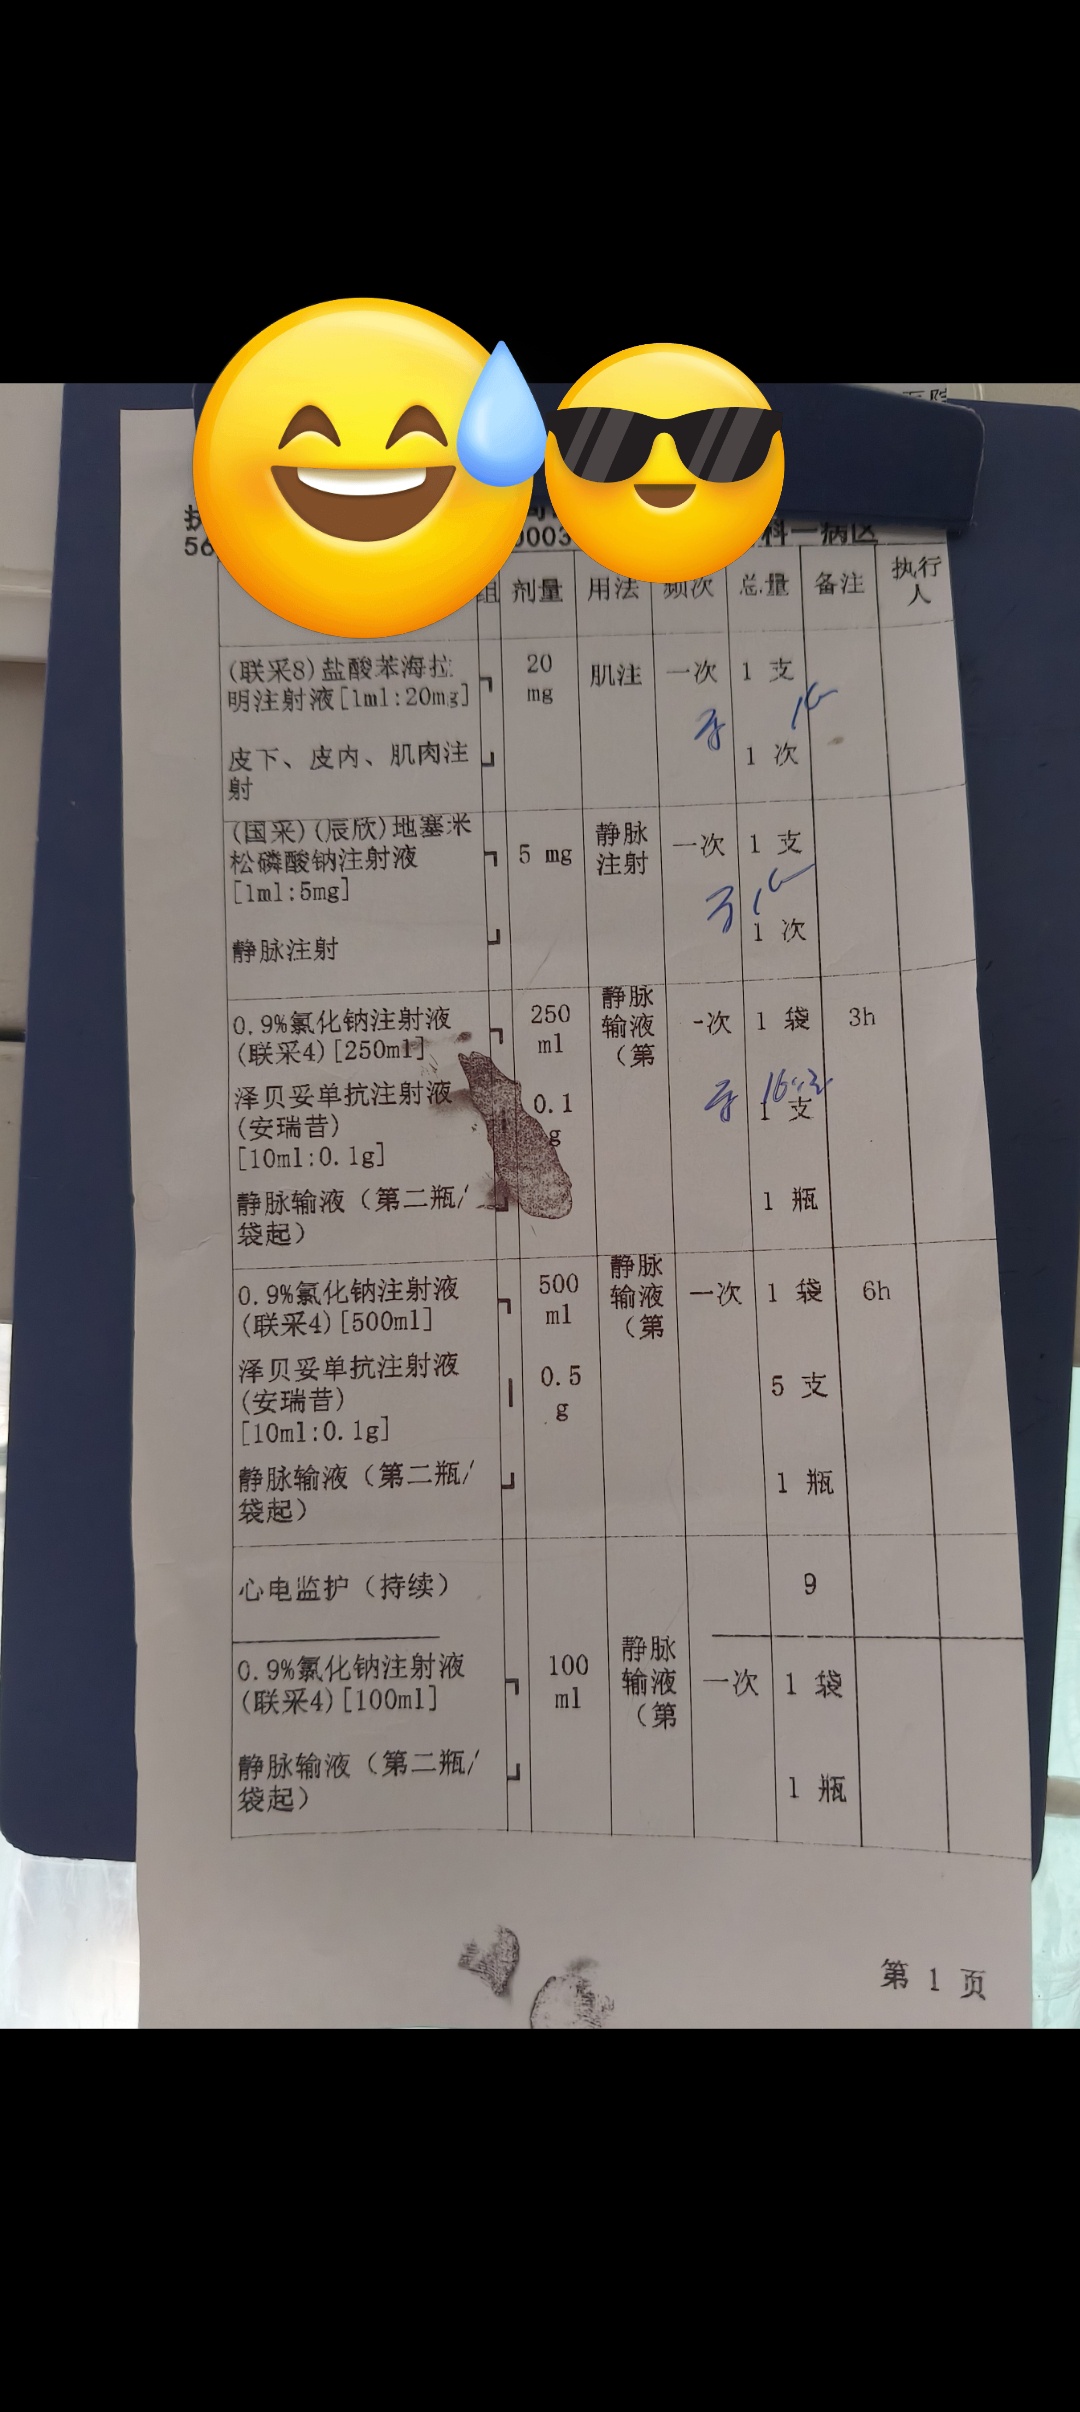 科一病区
组 剂量 用法 频次 总量 备注 执行人
(联采8)盐酸苯海拉 20 肌注 一次 1 支
明注射液[1ml:20mg] mg
皮下、皮内、肌肉注 1 次
射
(国采)(辰欣)地塞米 静脉
松磷酸钠注射液 5 mg 注射 一次 1 支
[1ml:5mg]
静脉注射 1 次
静脉
0.9%氯化钠注射液 250 输液 一次 1 袋 3h
(联采4)[250ml] ml (第
泽贝妥单抗注射液 0.1 1 支
(安瑞昔) g
[10ml:0.1g]
静脉输液（第二瓶/ 1 瓶
袋起）
静脉
0.9%氯化钠注射液 500 输液 一次 1 袋 6h
(联采4)[500ml] ml (第
泽贝妥单抗注射液 0.5 5 支
(安瑞昔) g
[10ml:0.1g]
静脉输液（第二瓶/ 1 瓶
袋起）
心电监护（持续） 9
静脉
0.9%氯化钠注射液 100 输液 一次 1 袋
(联采4)[100ml] ml (第
静脉输液（第二瓶/ 1 瓶
袋起）
第 1 页